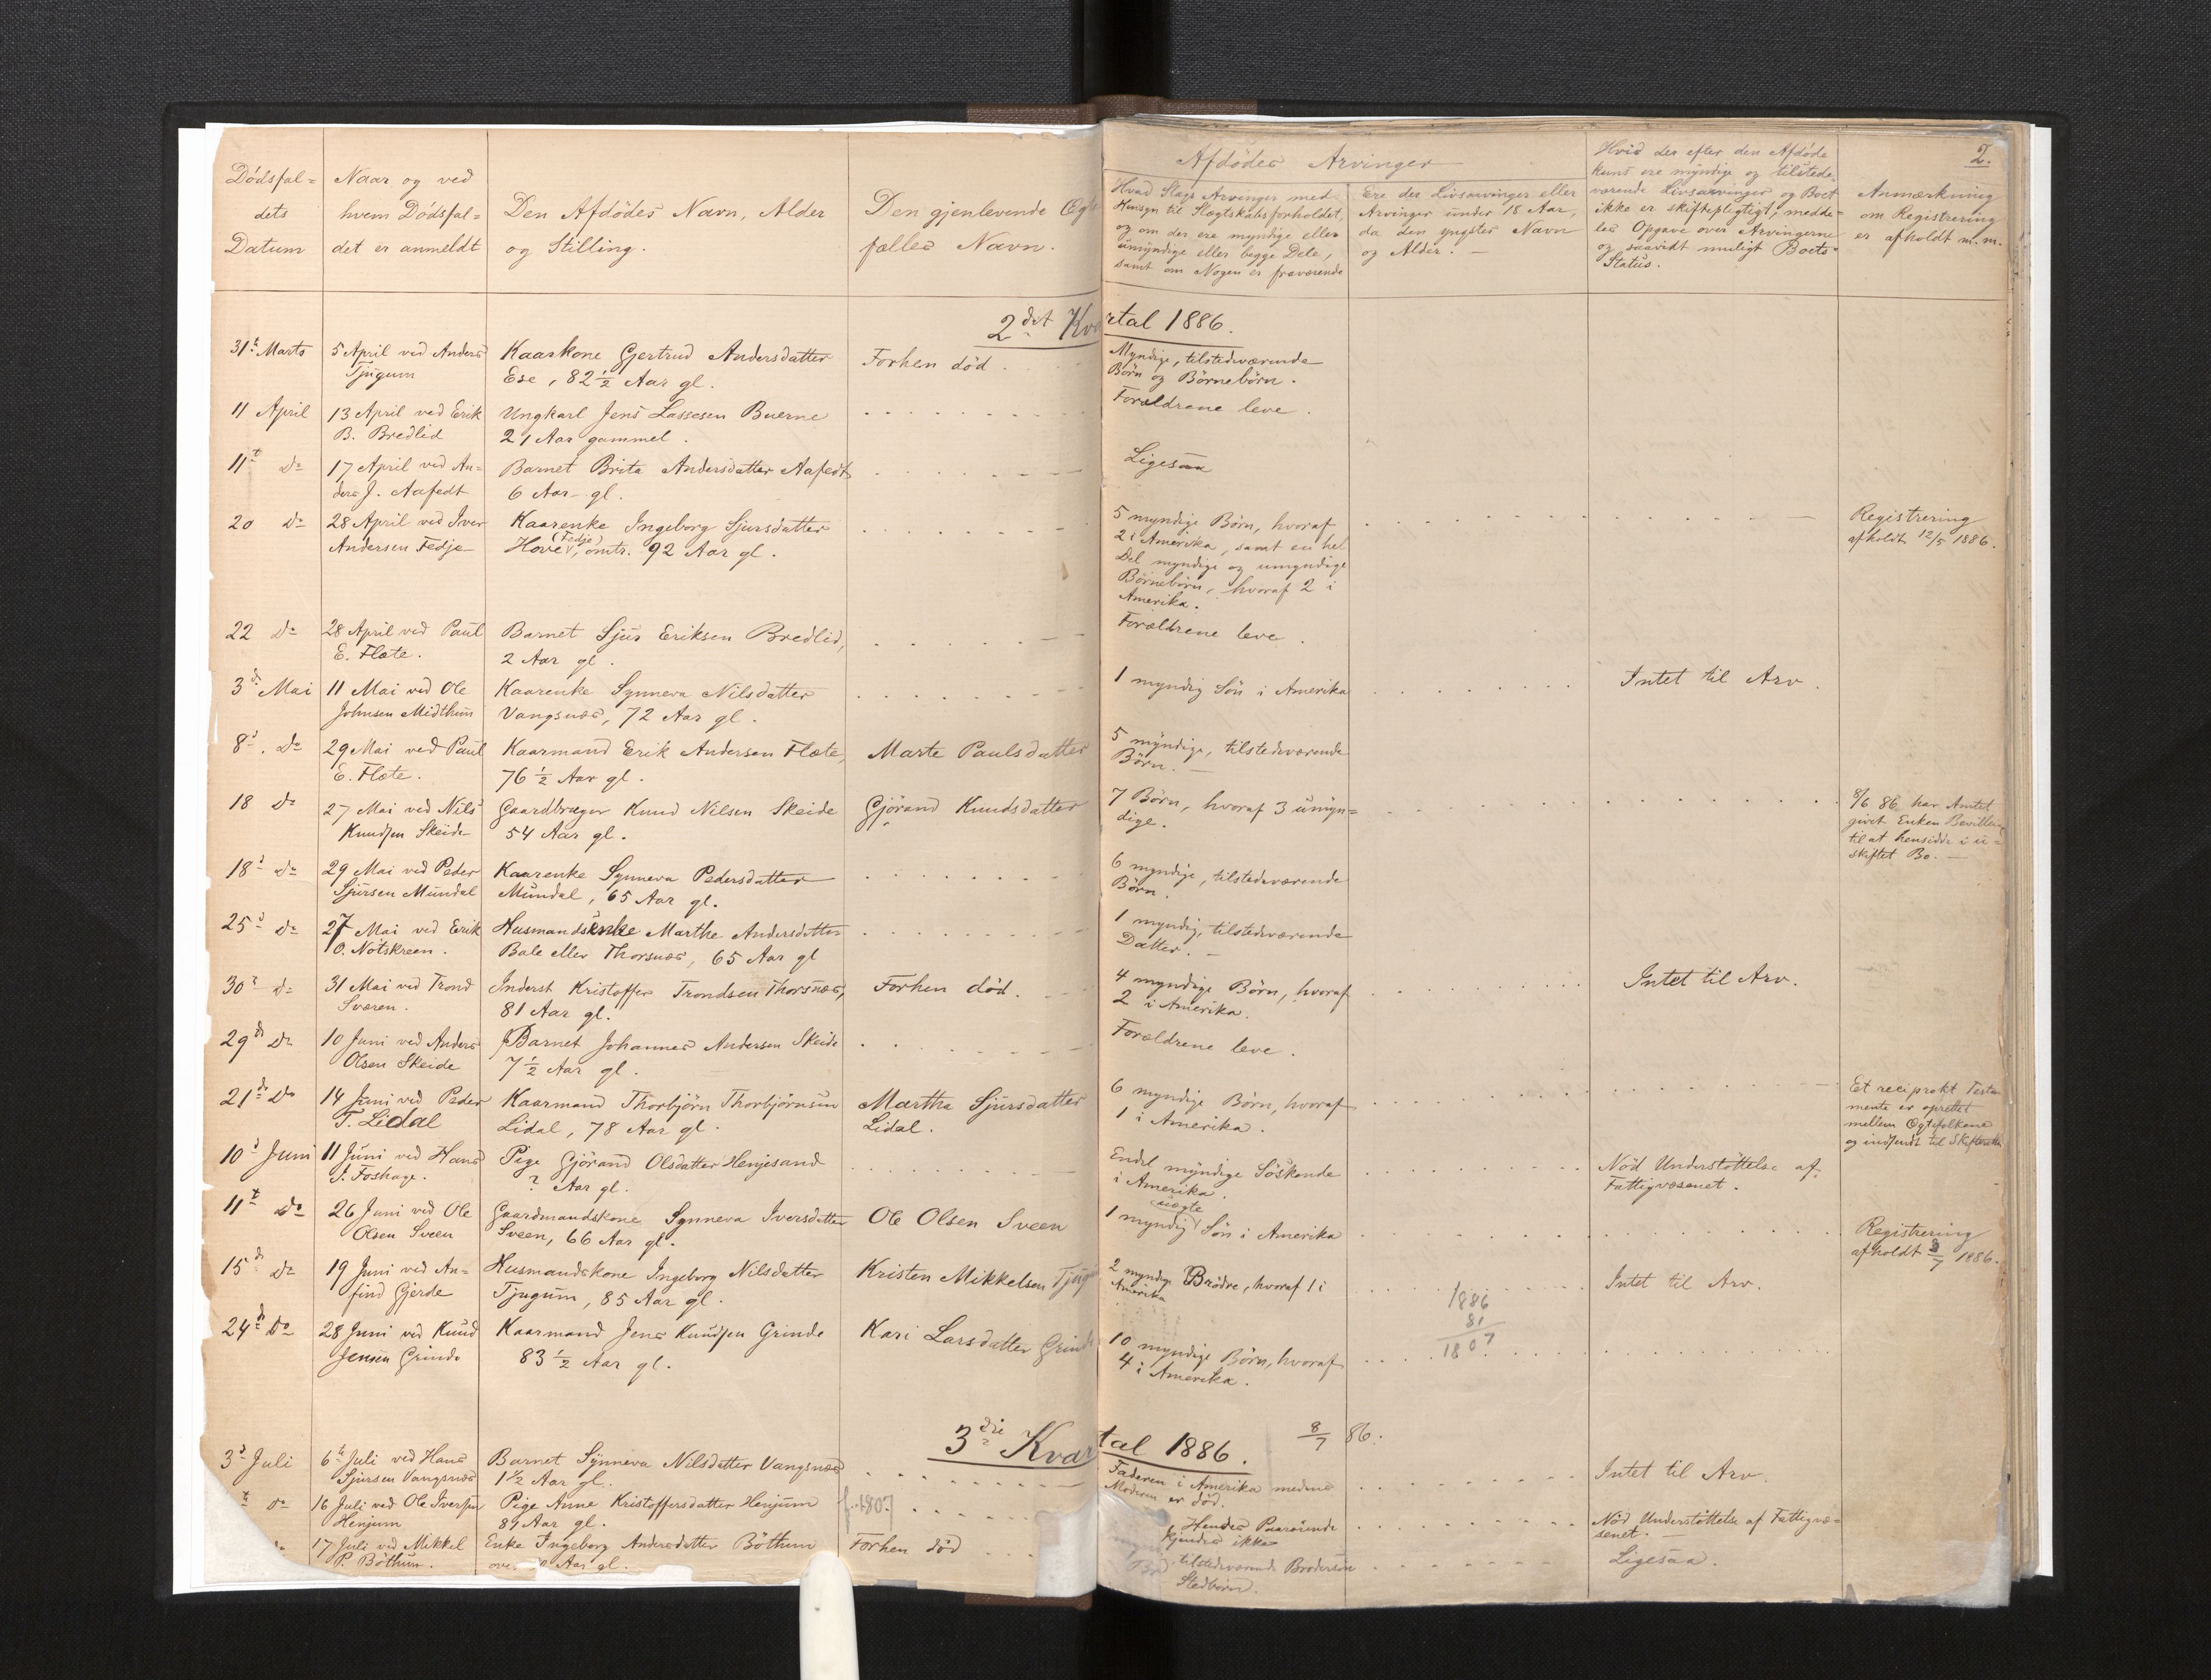 2.
Dödsfal=
dets
Datum
Naar og ved
hvem Dödsfal=
det er anmeldt
Den Afdödes Navn, Alder
og Stilling.
Den gjenlevende Ægte
fælles Navn.
Afdödes Arvinger
Hvad Slags Arvinger med
Hensyn til Slægtskabsforholdet,
og om der ere myndige eller
umyndige eller begge Dele,
samt om Nogen er fraværende
Ere der Livsarvinger eller
Arvinger under 18 Aar,
da den yngstes Navn
og Alder. —
Hvis der efter den Afdöde
kuns ere myndige og tilstede-
værende Livsarvinger og Boet
ikke er skiftepligtigt, medde=
les Opgave over Arvingerne
og saavidt muligt Boets
Status.
Anmærkning
om Registrering
er afholdt m.m.
2det Kvartal 1886.
31te Marts
5 April ved Anders
Tjugum
Kaarkone Gjertrud Andersdatter
Ese, 82 ½ Aar gl.
Forhen död.
Myndige, tilstedeværende
Börn og Börnebörn.
11 April
13 April ved Erik
B. Bredlid
Ungkarl Jens Lassesen Buerne
21 Aar gammel.
Forældrene leve.
11te Do
17 April ved An=
ders J. Aafedt
Barnet Brita Andersdatter Aafedt
6 Aar gl.
Ligesaa
20 Do
28 April ved Iver
Andersen Fedje
Kaarenke Ingeborg Sjursdatter
Hove (Fedje), omtr. 92 Aar gl.
5 myndige Börn, hvoraf
2 i Amerika, samt en hel
Del myndige og umyndige
Börnebörn, hvoraf 2 i
Amerika.
Registrering
afholdt 12/5 1886.
22 Do
28 April ved Paul
E. Flæte.
Barnet Sjur Eriksen Bredlid,
2 Aar gl.
Forældrene leve.
3d Mai
11 Mai ved Ole
Johnsen Midthun
Kaarenke Synneva Nilsdatter
Vangsnæs, 72 Aar gl.
1 myndig Sön i Amerika
Intet til Arv.
8d. Do
29 Mai ved Paul
E. Flæte.
Kaarmand Erik Andersen Flæte,
76 ½ Aar gl.
Marte Paulsdatter
5 myndige, tilstedeværende
Börn. —
18 Do
27 Mai ved Nils
Knudsen Skeide
Gaardbruger Knud Nilsen Skeide
54 Aar gl.
Gjörand Knudsdatter
7 Börn, hvoraf 3 umyn=
dige.
8/6 86 har Amtet
givet Enken Bevilling
til at hensidde i u=
skiftet Bo. —
18d Do
29 Mai ved Peder
Sjursen Mundal
Kaarenke Synneva Pedersdatter
Mundal, 65 Aar gl.
6 myndige, tilstedeværende
Börn.
25d Do
27 Mai ved Erik
O. Nötskreen.
Husmandsenke Marthe Andersdatter
Bale eller Thorsnæs, 65 Aar gl
1 myndig, tilstedeværende
Datter. —
30d Do
31 Mai ved Trond
Sværen.
Inderst Kristoffer Trondsen Thorsnæs,
81 Aar gl.
Forhen död.
4 myndige Börn, hvoraf
2 i Amerika.
Intet til Arv.
29de Do
10 Juni ved Anders
Olsen Skeide
Barnet Johannes Andersen Skeide
7 ½ Aar gl.
Forældrene leve.
21de Do
14 Juni ved Peder
T. Lidal
Kaarmand Thorbjörn Thorbjörnsen
Lidal, 78 Aar gl.
Martha Sjursdatter
Lidal.
6 myndige Börn, hvoraf
1 i Amerika.
Et reciprokt Testa
mente er oprettet
mellem Ægtefolkene
og indsendt til Skifteretten
10d Juni
11 Juni ved Hans
J. Foshage.
Pige Gjörand Olsdatter Henjesand
? Aar gl.
Endel myndige Söskende
i Amerika.
Nöd Understöttelse af
Fattigvæsenet.
11te Do
26 Juni ved Ole
Olsen Sveen
Gaardmandskone Synneva Iversdatter
Sveen, 66 Aar gl.
Ole Olsen Sveen
uægte
1 myndig Sön i Amerika
Registrering
afholdt 3/7 1886.
15de Do
19 Juni ved An=
find Gjerde
Husmandskone Ingeborg Nilsdatter
Tjugum, 85 Aar gl.
Kristen Mikkelsen Tjugum
2 myndige Brödre, hvoraf 1 i
Amerika
Intet til Arv.
1886
81
1807
24de Do
28 Juni ved Knud
Jensen Grinde
Kaarmand Jens Knudsen Grinde
83 ½ Aar gl.
Kari Larsdatter Grinde
10 myndige Börn, hvoraf
4 i Amerika.
3die Kvartal 1886.
8/7 86.
3d Juli
6te Juli ved Hans
Sjursen Vangsnæs
Barnet Synneva Nilsdatter Vangsnæs
1½ Aar gl.
Faderen i Amerika medens
Moderen er död.
Intet til Arv.
te do
16 Juli ved Ole Iversen
Henjum
Pige Anne Kristoffersdatter Henjum
81 Aar gl.
f. 1807
Hendes Paarörende
kjendes ikke
Nöd Understöttelse af Fattigvæ=
senet. —
17 Juli ved Mikkel
P. Böthun.
Enke Ingeborg Andersdatter Böthun
Aar gl.
Forhen död
tilstedeværende Brodersön
Stedbörn.
Ligesaa.